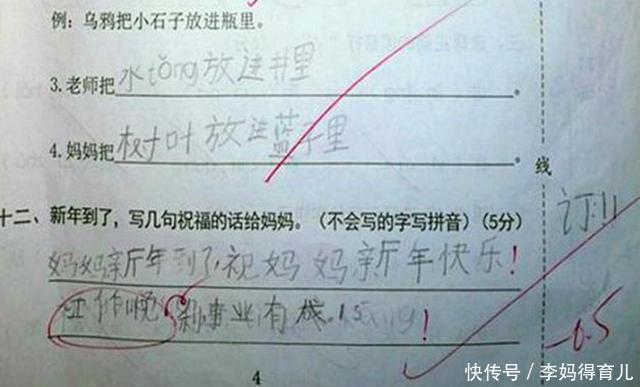 例：乌鸦把小石子放进瓶里。
3.老师把水tǒng放进井里。
4.妈妈把树叶放进蓝子里。
线
订!!
十二、新年到了，写几句祝福的话给妈妈。（不会写的字写拼音）（5分）
妈妈新年到了,祝妈妈新年快乐!
工作 事业有
-0.5
4
快传号／李妈得育儿